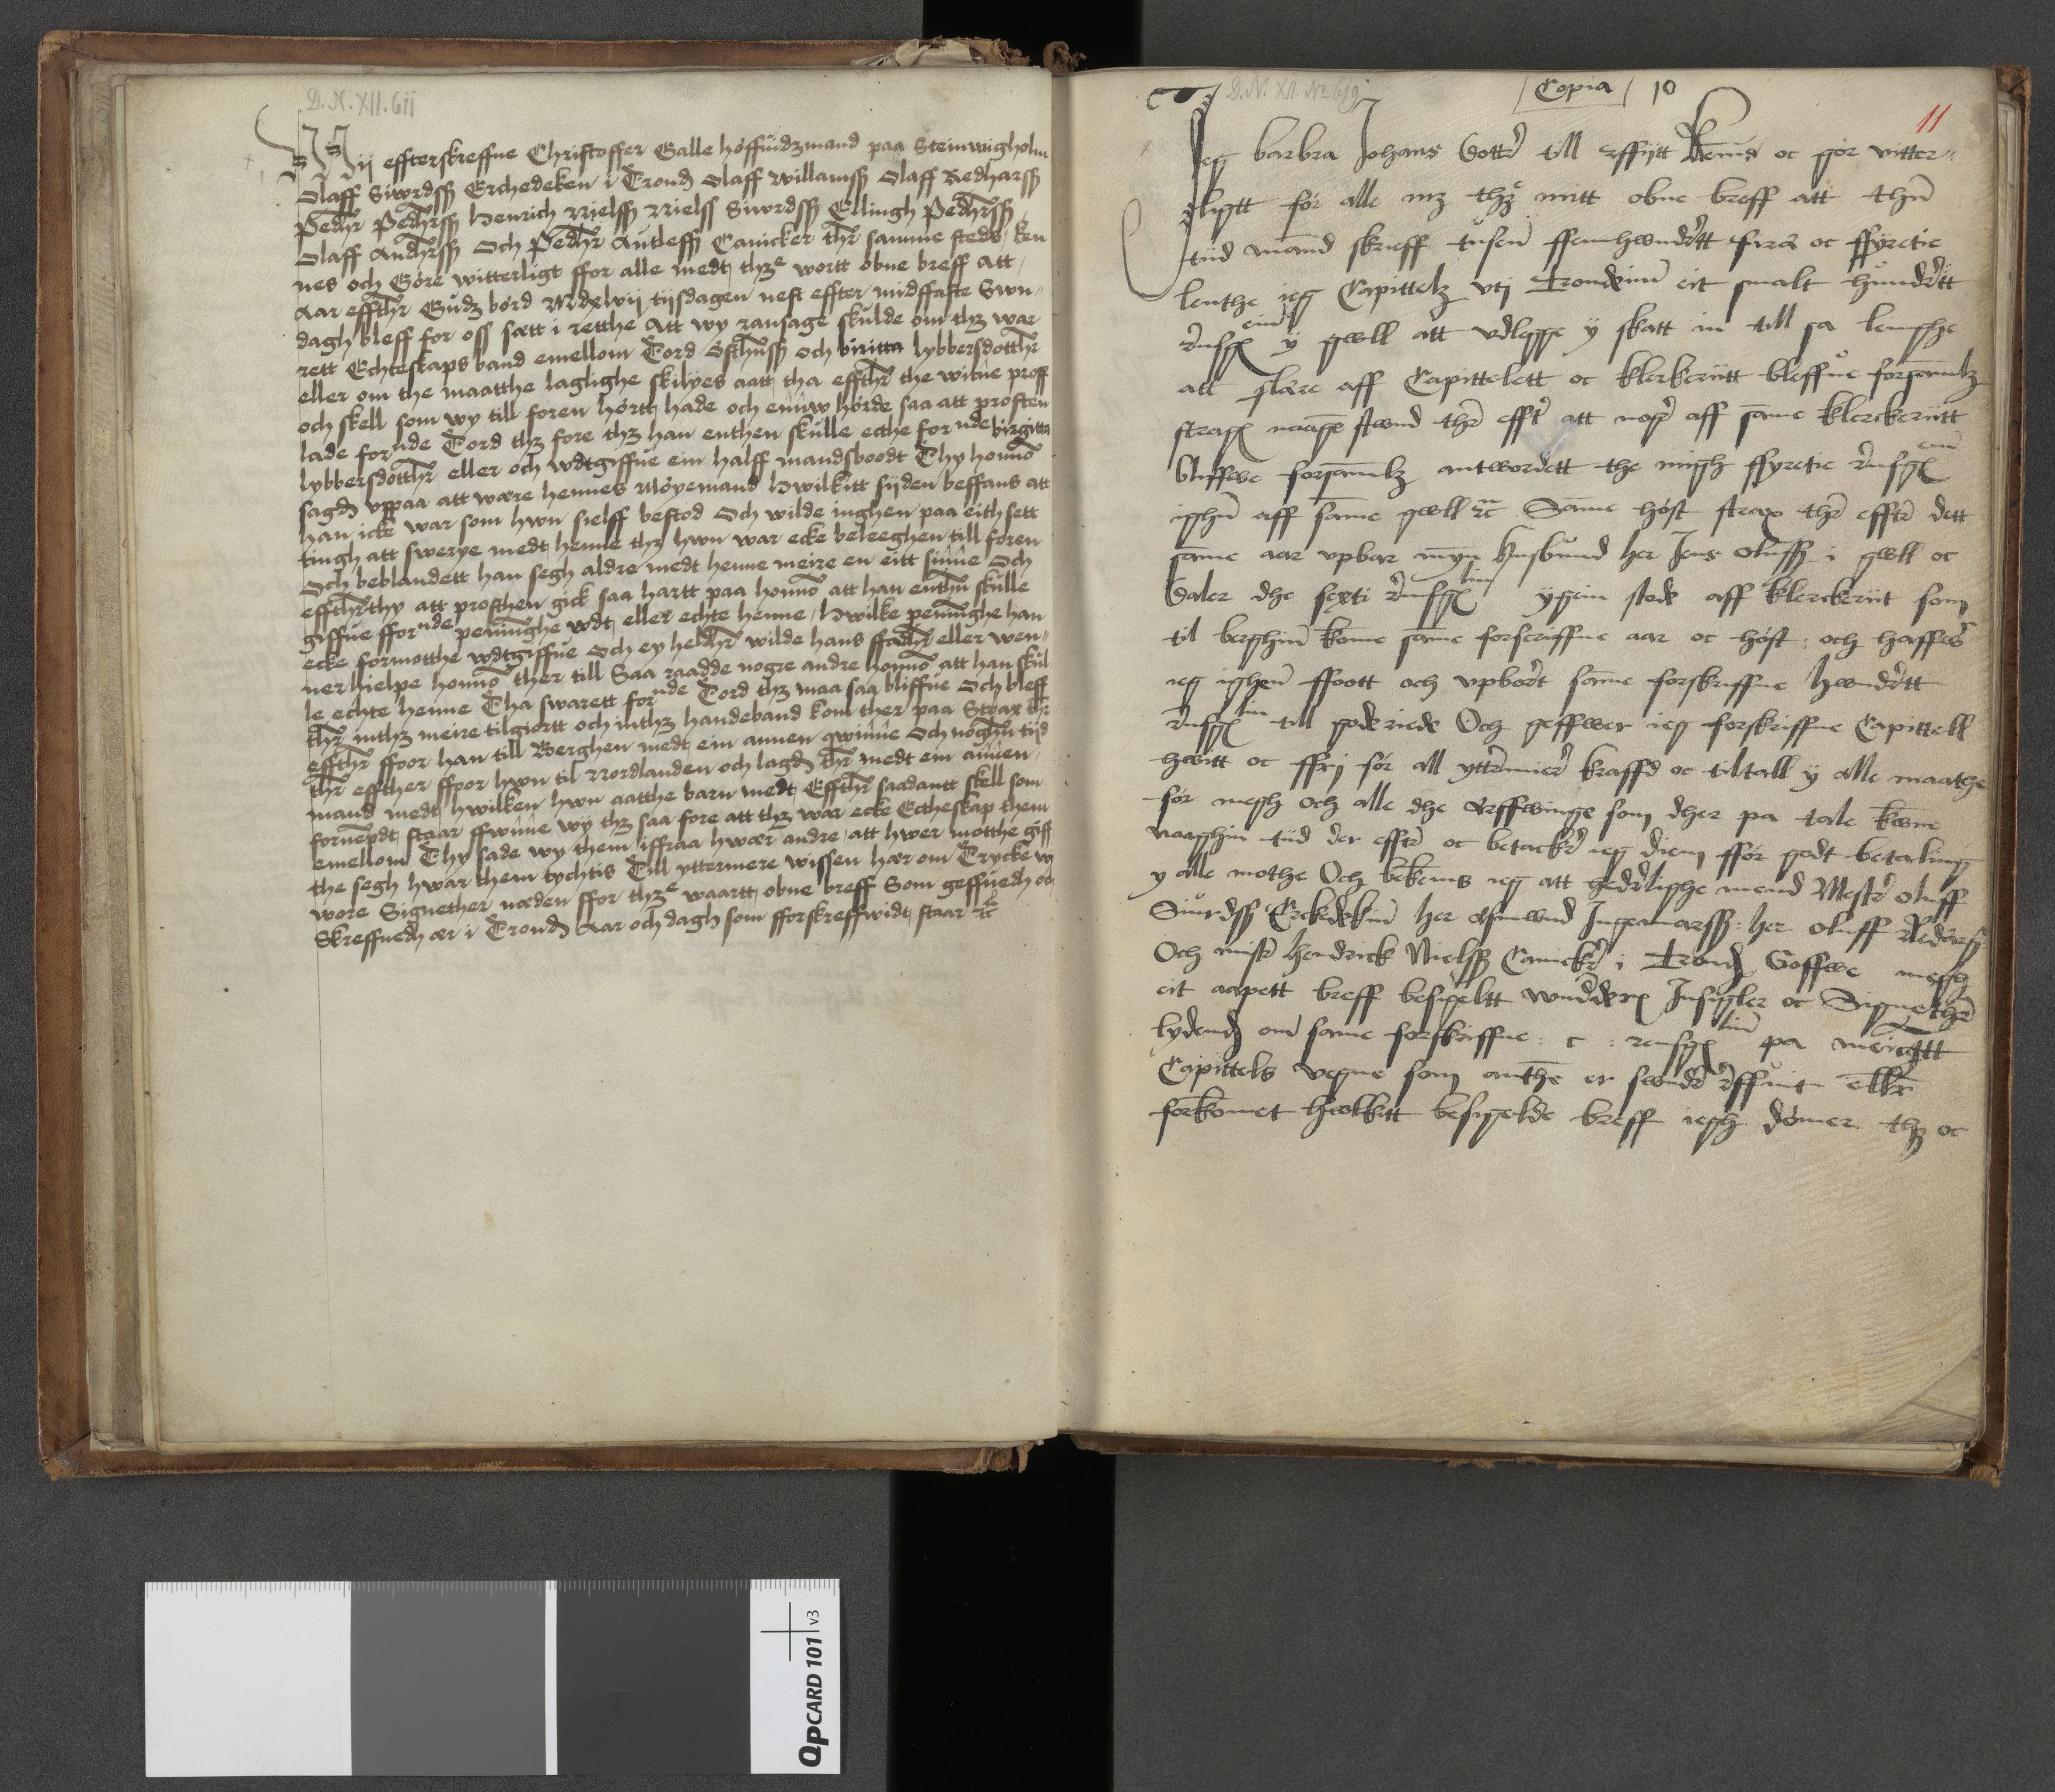 D. N. XII. 611
Wij effterskreffne Christoffer Galle höffuidzmand paa Steinwigholm
Olaff Siwrdssøn Erchedeken i Trond Olaff Willamssøn Olaff Redharssøn
Pedhr Pedhrssøn Henrich Nielssøn Nielss Siwrdssøn Ellingh Pedhrssøn
Olaff Andhrssøn Och Pedhr Autleffssøn Canicker thr samme steds ken
nes och Göre witterligt ffor alle medt thze wortt obne breff Att
Aar effthr Gudz börd Mdxlvij tijsdagen nest effter midffaste Swn¬
dagh bleff for oss sætt i retthe Att wy ransage skulde om thz war
rett Echteskaps band emellom Tord östhussøn och biritta lybbersdotthr
eller om the maatthe laglighe skilyes aatt tha effthr the witne proff
och skell som wy till foren hörtt hade och ennw hörde saa att prosten
lade fornde Tord thz fore thz han enthen skulle ecthe fornde birgitta
lybbersdotthr eller och wdtgiffue ein halff mandsboodt Thy honno
sagd vppaa att wære hennes Möyemand Hwilkitt sijden beffans att
han icke war som hwn sielff bestod Och wilde inghen paa eith sett
tingh att swerye medt henne thz hwn war ecke beleeghen till foren
Och beblandett han segh aldre medt henne meire en eitt sinne Och
effthrthy att prosthen gick saa hartt paa honno att han enthn skulle
giffue ffornde penninghe wdt eller echte henne / Hwilke penninghe han
ecke formotthe wdtgiffue Och ey heldhr wilde hans ffadhr eller wen¬
ner hielpe honno ther till Saa raadde nogre andre honno att han skul
le echte henne Tha swarett fornde Tord thz maa saa bliffue Och bleff
thr inthz meire tilgiortt och inthz handeband kom ther paa Strax thr
effthr ffoor han till Berghen medt ein annen qwinne Och noghn tijd
thr effther ffoor hwn til Nordlanden och lagd thr medt ein annen
mand medt hwilken hwn aatthe barn medt Effthr saadantt skell som
fornempdt staar ffwnne wij thz saa fore att thz war ecke Ectheskap them
emellom Thy sade wy them iffraa hwær andre att hwer motthe giff
the segh hwar them tychtis Till yttermere wissen hær om Trycke wy
wore Signether næden ffor thze waartt obne breff Som geffuedh oc
Skreffuedh ær i Trond Aar och dagh som fforskreffwidt staar etc
D. N. XII. No 619
Copia 10
11
Jeg barbra Johans dottr till erffijtt kennis oc gör vitter¬
ligtt för alle mz thz mitt obne breff att thn
tiid mand skrieff tusen ffemhwndrtt fira oc ffyretie
lenthe ieg Capittelz vtj Trondeim eit smalt hundrtt
rinsgl y gwll att vdlegge y skatt in till sa lenghe
att flære aff Capittelett oc klerkeriitt bleffue forsamlz
strax naagn stwnd thr efftr att nogr aff same klerckeriitt
bliffwe forsamlz antwordett the migh ffyretie rinsgl
ighn aff same gwll etc Same höst strax thr efftr dett
same aar vpbar myn husbund her Jens olufssøn i gwll oc
daler dhe sexti rinsgl ygein stode aff klerckeriit som
til berghin kome same forscriffne aar oc höst : och haffwr
ieg ighen ffoott och vpbort same forskriffne hwndrtt
rinsgl till gode rede Och geffwer ieg forskriffne Capittell
hwitt oc ffrij för all yttrmier kraffd oc tiltall y alle maathe
för megh och alle dhe ærffwinge som dher pa tale kwne
naaghin tiid der efftr oc betackr ieg diem fför godt betaling
y alle mothe Och bekennis ieg att hedrlighe mend Mestr oluff
Siurdssøn Erckdekin her Asmwnd Ingeamarssøn : her oluff Redarssøn
Och mistr hendrick Nielssøn Canickr i Trondh Goffwe megh
eit aapett breff besigeltt wndr dere Insigler oc Signethr
lydendh om same forskriffne : c : rensgl pa menigtt
Capittels vegne som anthe er swndr rffuit ellr
forkomet hwilkitt besigelde breff iegh dömer thz oc
QPCARD 101 v3